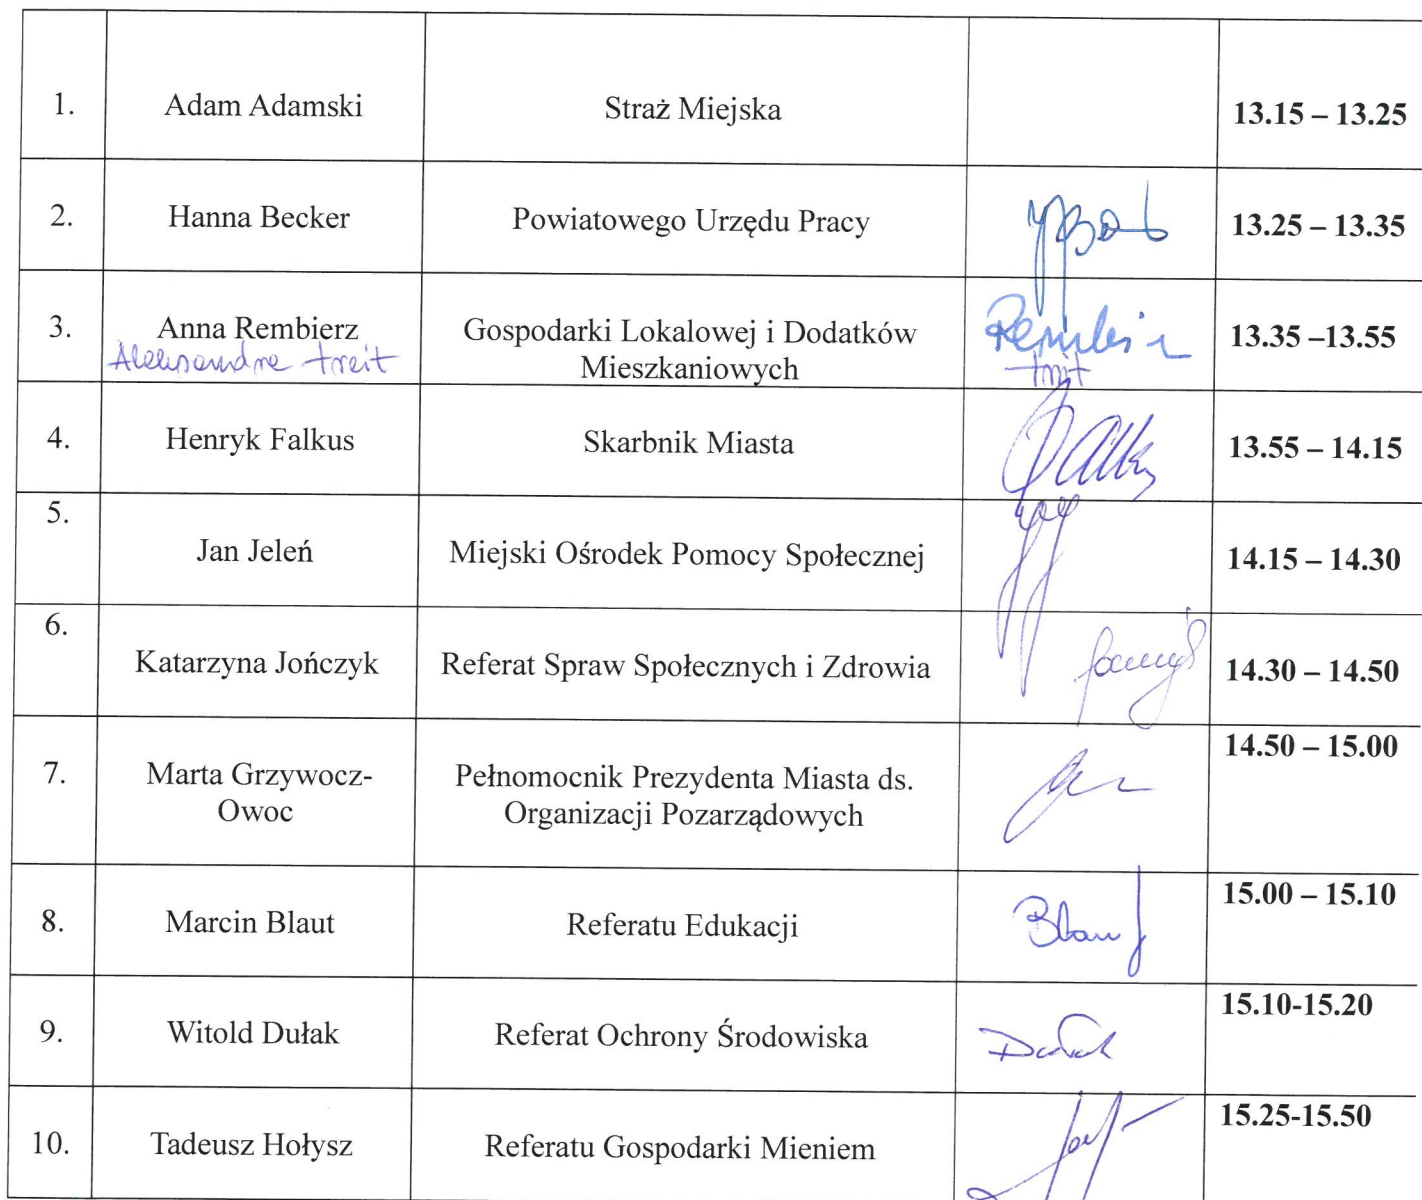 1. Adam Adamski Straż Miejska 13.15 – 13.25
2. Hanna Becker Powiatowego Urzędu Pracy 13.25 – 13.35
3. Anna Rembierz Gospodarki Lokalowej i Dodatków 13.35 –13.55
Aleksandra Treit Mieszkaniowych
4. Henryk Falkus Skarbnik Miasta 13.55 – 14.15
5.
Jan Jeleń Miejski Ośrodek Pomocy Społecznej 14.15 – 14.30
6.
Katarzyna Jończyk Referat Spraw Społecznych i Zdrowia 14.30 – 14.50
14.50 – 15.00
7. Marta Grzywocz- Pełnomocnik Prezydenta Miasta ds.
Owoc Organizacji Pozarządowych
15.00 – 15.10
8. Marcin Blaut Referatu Edukacji
15.10-15.20
9. Witold Dułak Referat Ochrony Środowiska Dułak
15.25-15.50
10. Tadeusz Hołysz Referatu Gospodarki Mieniem